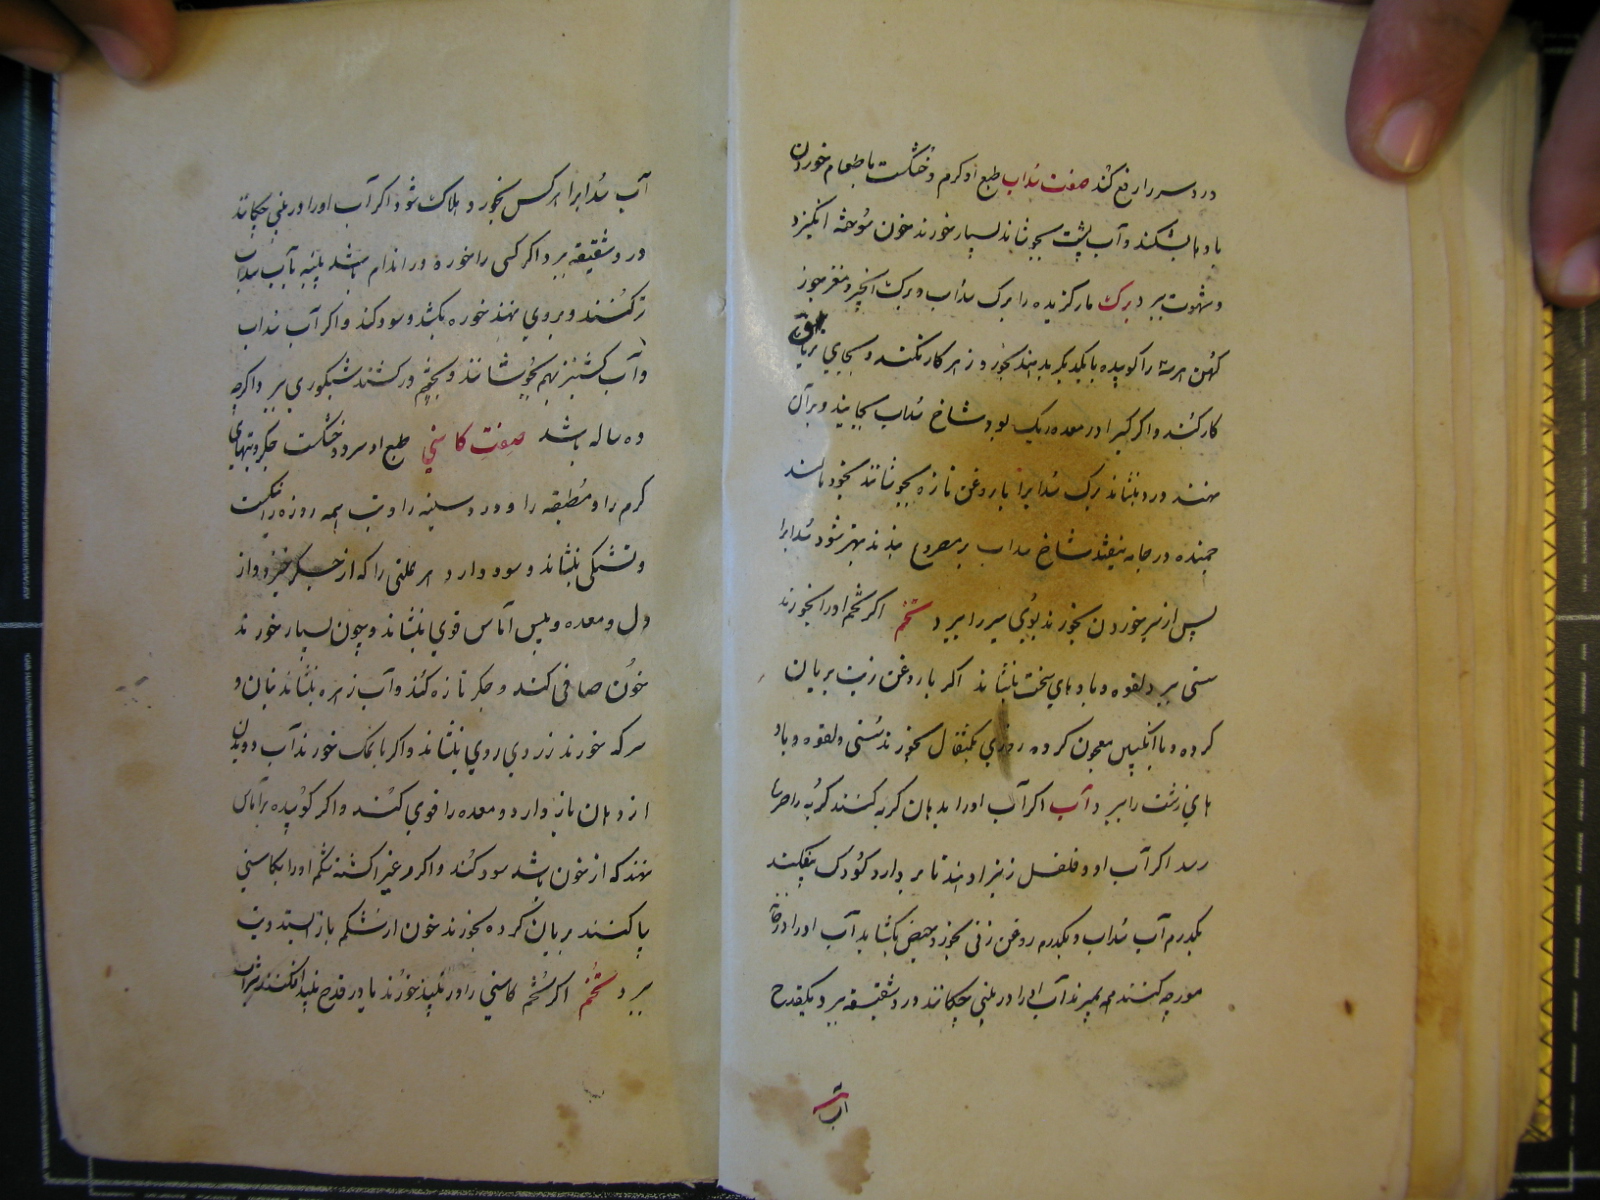 درد سر را رفع کند صفت سداب طبع او کرم و خشکست با طعام خوردن
بادها بشکند و آب پشت بجوشاند بسیار خورند خون سوخته انکیزد
و شهوت ببرد برک مارکزیده را برک سداب و برک انجیر و مغز جوز
کهن هر سه را کوبیده با یکدیکر بدهند بخورد و زهر کار نکند و بجای تریاق
کار کند و اکر کسیرا در معده ریک بود شاخ سداب بجایند و بر آن
نهند درد بنشاند برک سدابرا با روغن تازه بجوشانند بخود مالند
جمنده در جامه نیفتد شاخ سداب بر مصروع بندند بهتر شود سدابرا
پس از سیر خوردن بخورند بوی سیر را ببرد تخم اکر تخم او را بخورند
سستی ببرد لقوه و بادهای سخت بنشاند اکر با روغن زیت بریان
کرده و با انکبین معجون کرده روزی یکمثقال بخورند سستی و لقوه و باد
های زشت را ببرد آب اکر آب او را بدهان کربه کنند کربه را
رسد اکر آب او و فلفل زن بردارد کودک بیفکند
یکدرم آب سداب و یکدرم روغن زنی بخورد حیض بکشاید آب او را در خانه
مورچه کنند همه بمیرند آب او را در بینی چکانند درد شقیقه ببرد یکقدح
آب
آب سدابرا هر کس بخورد هلاک شود اکر آب او را در بینی چکانند
درد شقیقه ببرد اکر کسی را خوره در اندام باشد پنبه بآب سداب
تر کنند و بر وی نهند خوره بکشد و سود کند و اکر آب سداب
و آب کشنیز بهم بجوشانند و بچشم در کشند شبکوری ببرد اکرچه
ده ساله باشد صفت کاسنی طبع او سرد و خشکست جکر و تبهای
کرم را و مطبقه را و درد سینه را و تب همه روزه را نیکست
و تشنکی بنشاند و سود دارد هر علتی را که از جکر خیزد و از
دل و معده و بس آماس قوی بنشاند و چون بسیار خورند
خون صافی کند و جکر تازه کند و آب زهره بنشاند بنان و
سرکه خورند زردی روی بنشاند و اکر با نمک خورند آب دویدن
از دهان باز دارد و معده را قوی کند و اکر کوبیده بر آماس
نهند که از خون باشد سود کند و اکر مرغی را کشته شکم او را بکاسنی
پا کنند بریان کرده بخورند خون از شکم باز ایستد و تب
ببرد تخم اکر تخم کاسنی را در نبیذ خورند یا در قدح نبیذ افکنند شراب